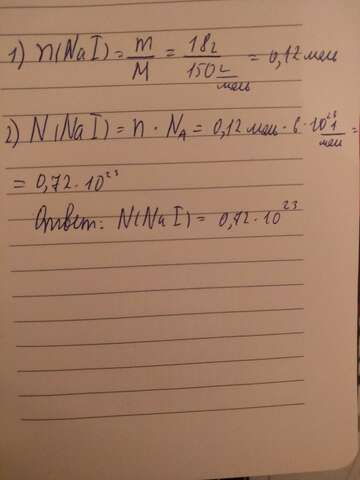 1) n(NaI) = m/M = 18г/150 г/моль = 0,12 моль
2) N(NaI) = n · N_A = 0,12 моль · 6 · 10²³ 1/моль =
= 0,72 · 10²³
Ответ: N(NaI) = 0,72 · 10²³